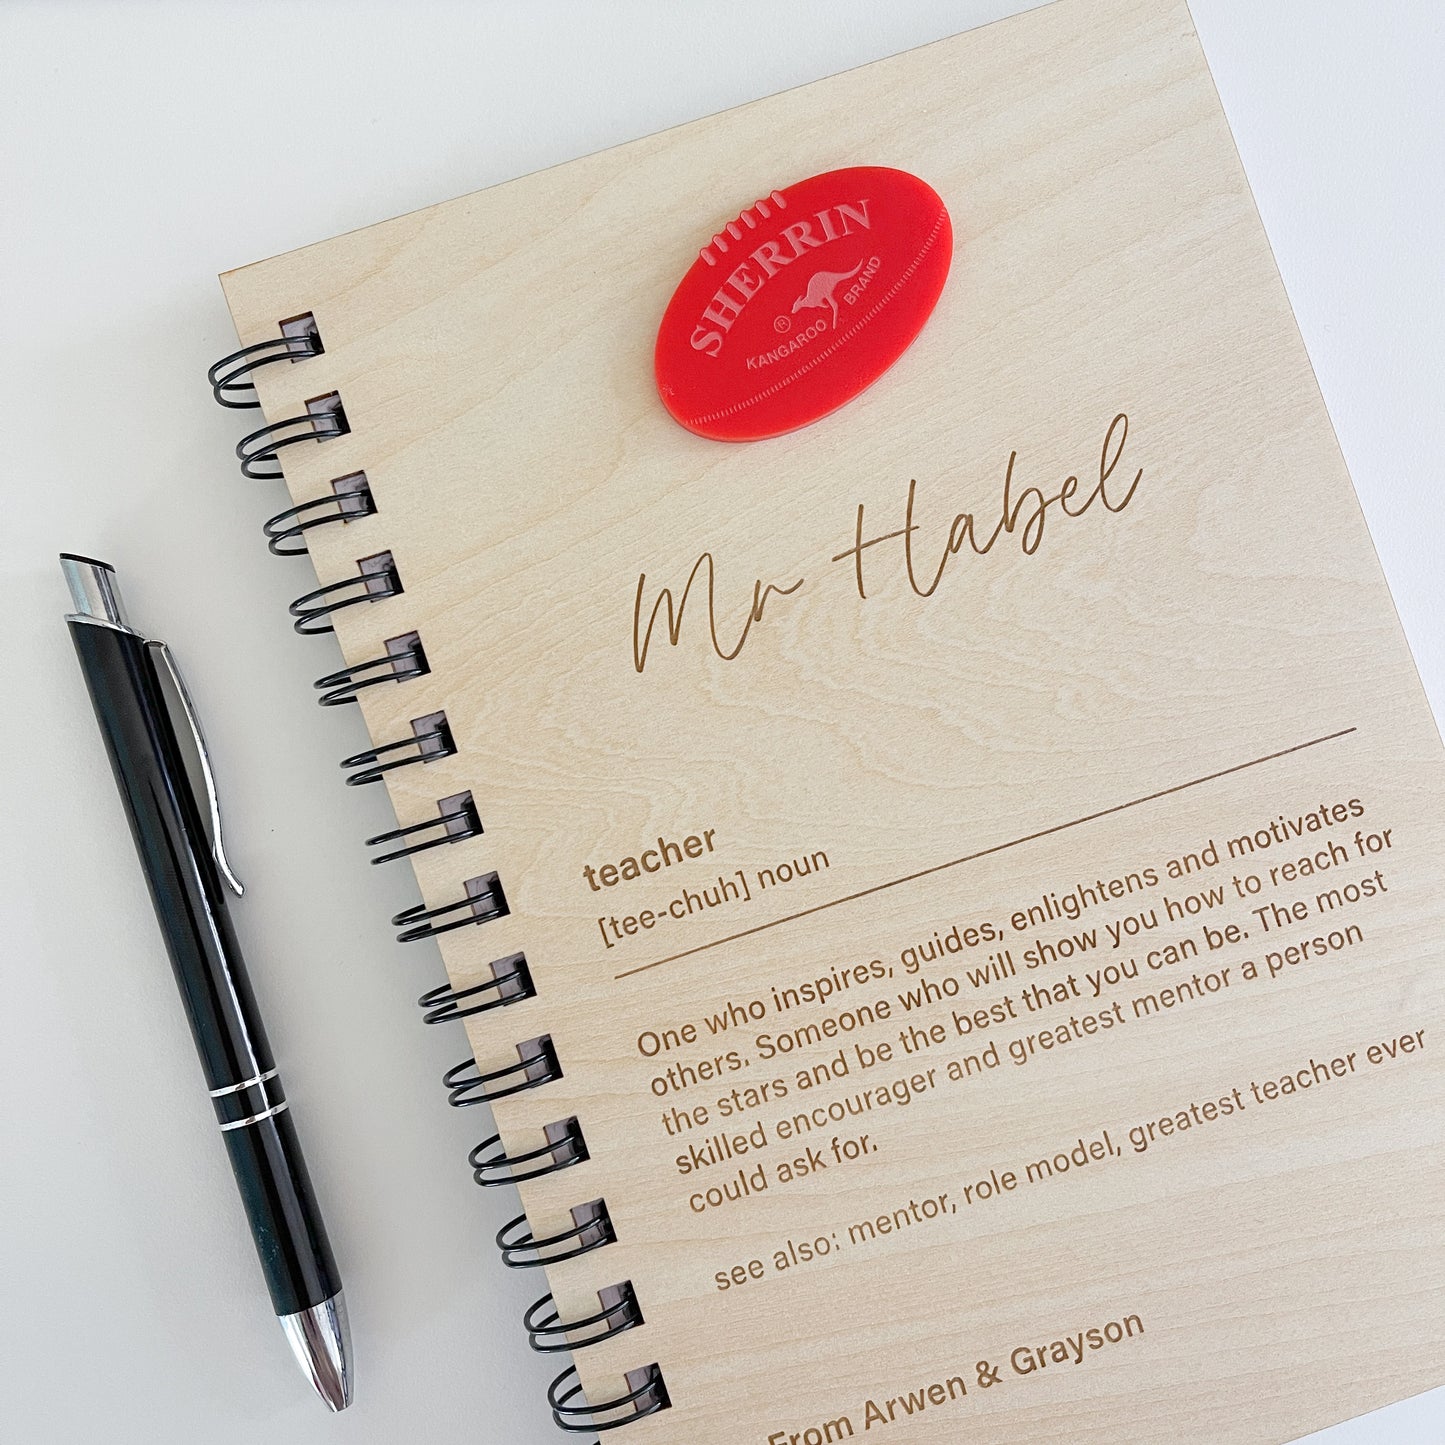 SHERRIN
® KANGAROO BRAND
Mr Habel
teacher
[tee-chuh] noun
One who inspires, guides, enlightens and motivates
others. Someone who will show you how to reach for
the stars and be the best that you can be. The most
skilled encourager and greatest mentor a person
could ask for.
see also: mentor, role model, greatest teacher ever
From Arwen & Grayson